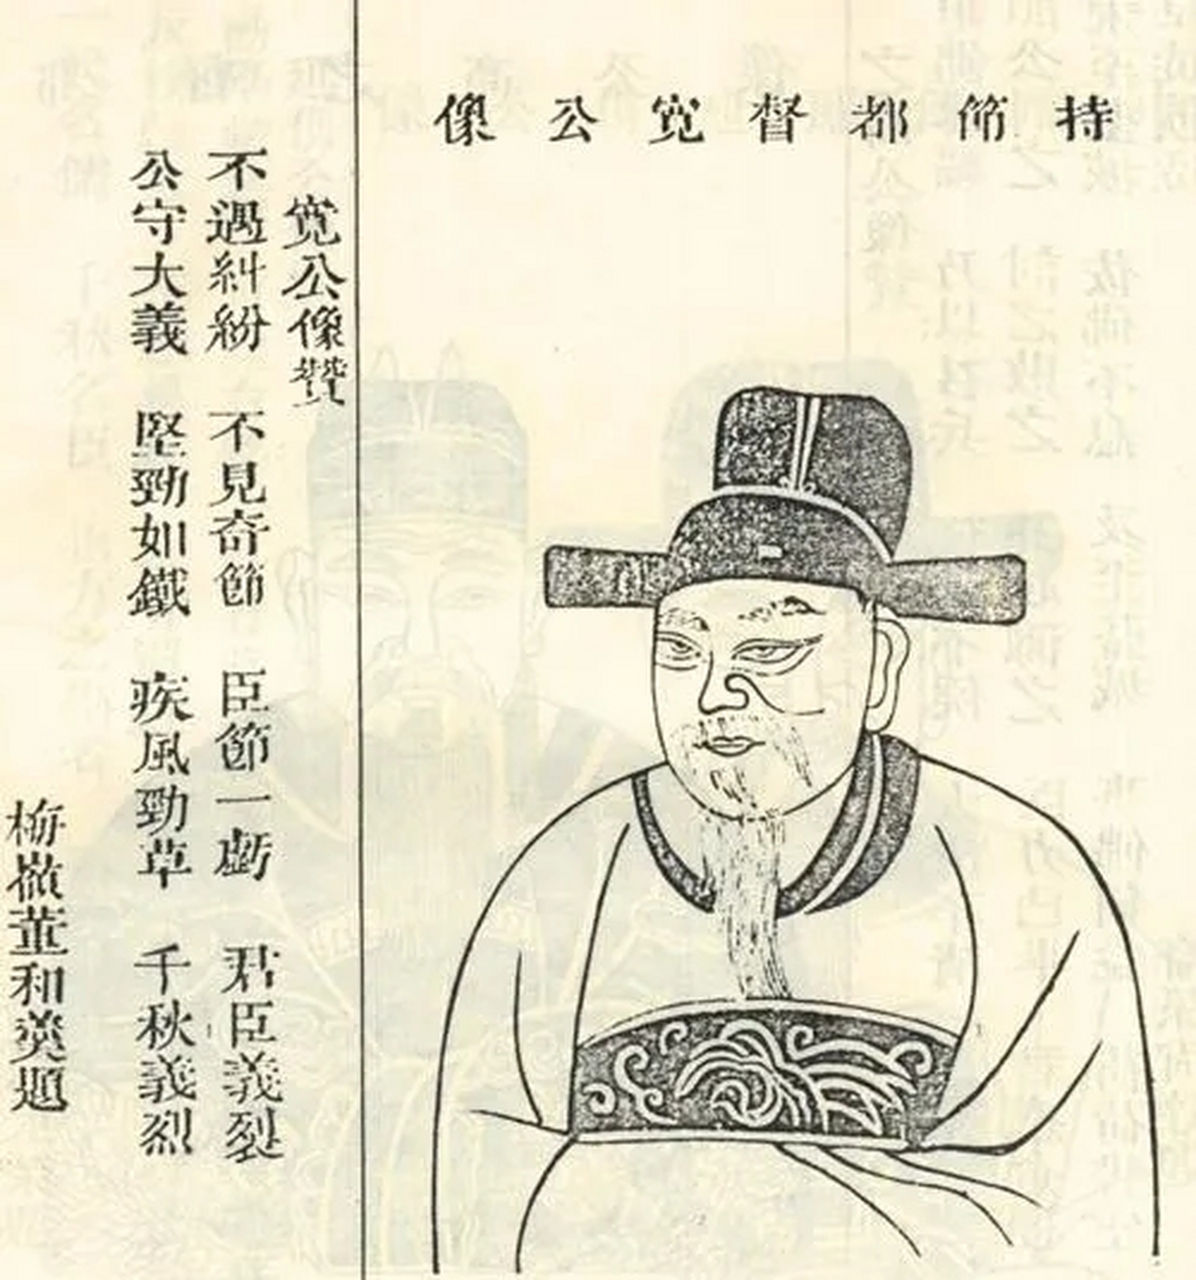 持節都督寛公像
寛公像贊
不遇糾紛 不見奇節 臣節一虧 君臣義裂
公守大義 堅勁如鐵 疾風勁草 千秋義烈
董和羹題